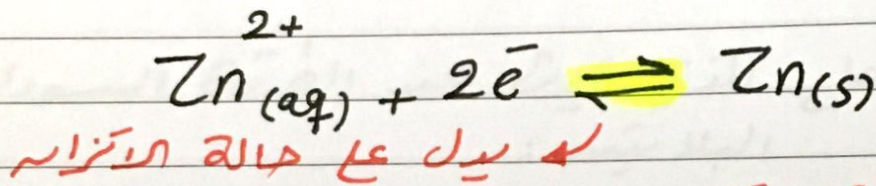 Zn²⁺(aq) + 2e⁻ ⇌ Zn(s)
↲ يدل على حالة الاتزان